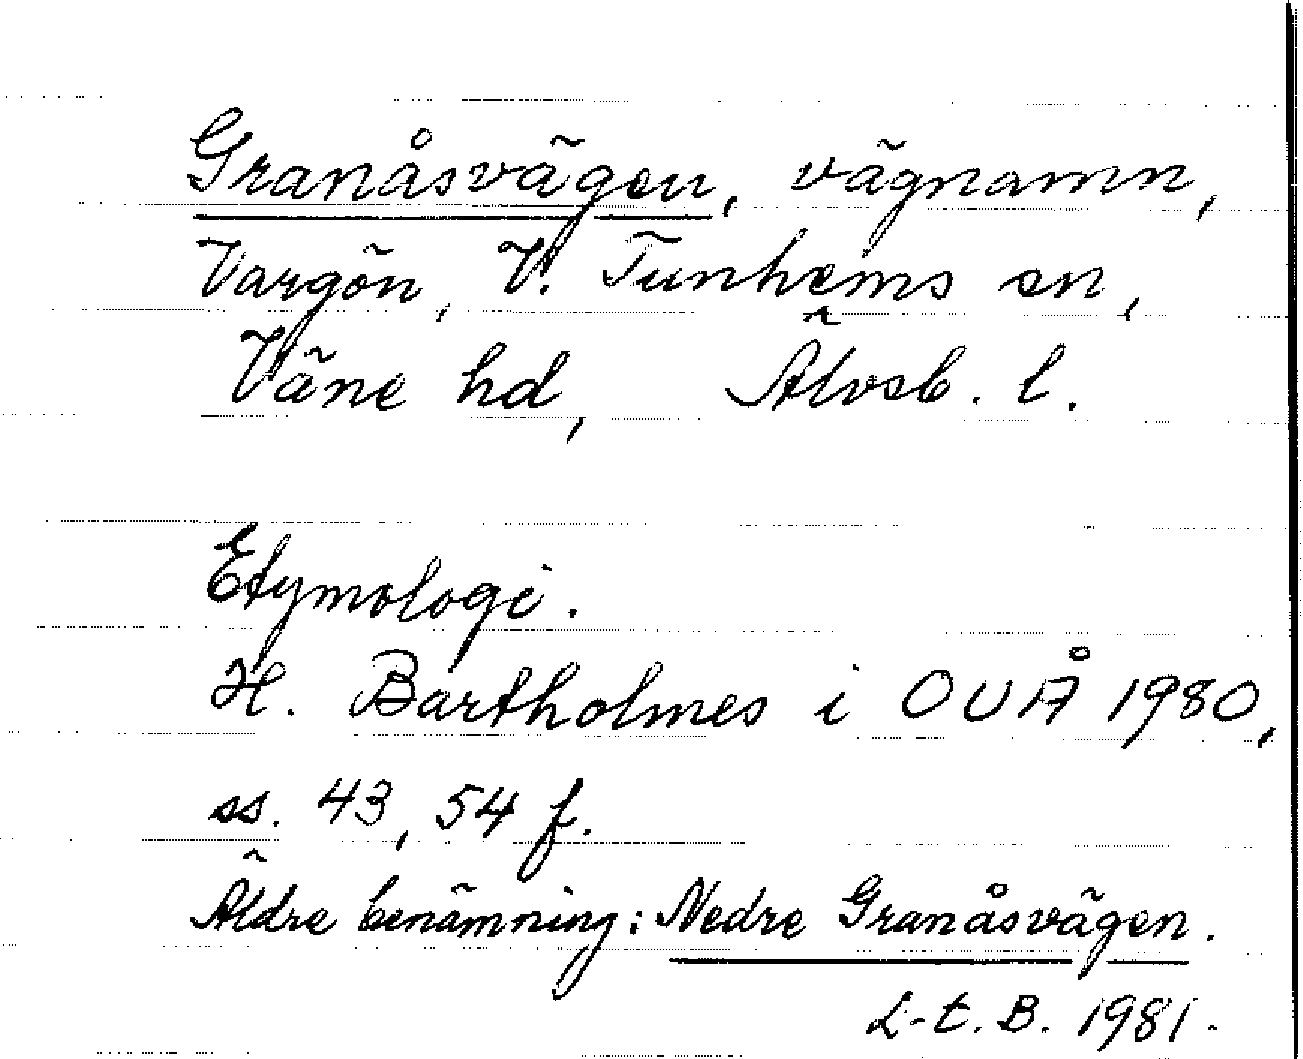 Granåsvägen, vägnamn,
Vargön, V. Tunhems sn,
Väne hd, Älvsb. l.
Etymologi.
H. Bartholmes i OUÅ 1980,
ss. 43, 54 f.
Äldre benämning: Nedre Granåsvägen.
L-t. B. 1981.